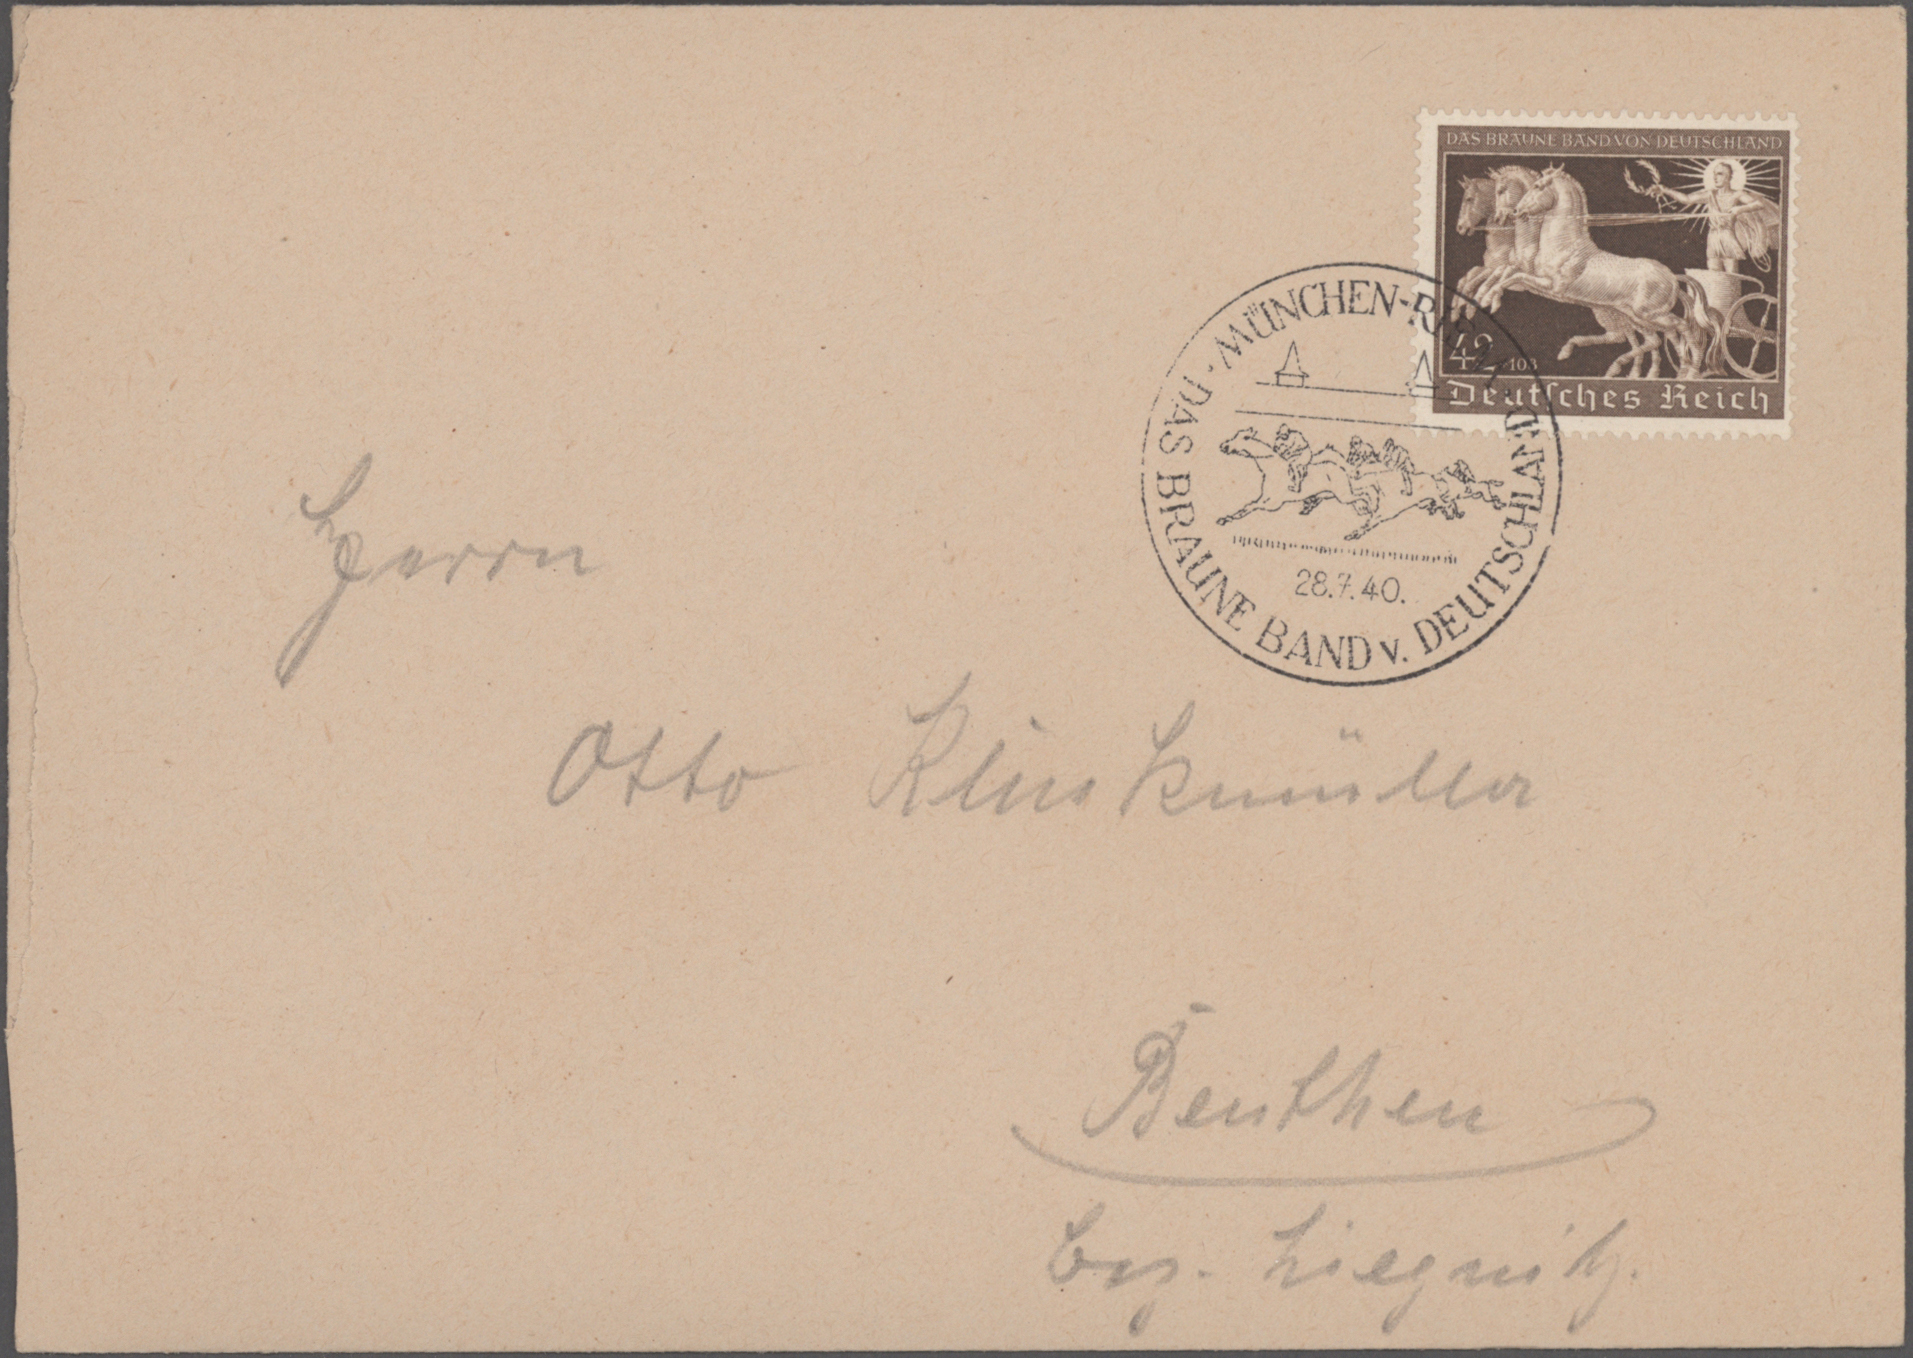 DAS BRAUNE BAND VON DEUTSCHLAND
42 + 108
Deutsches Reich
MÜNCHEN-RIEM · DAS BRAUNE BAND v. DEUTSCHLAND
28.7.40.
Herrn
Otto Klinkmüller
Beuthen
Bez. Liegnitz.